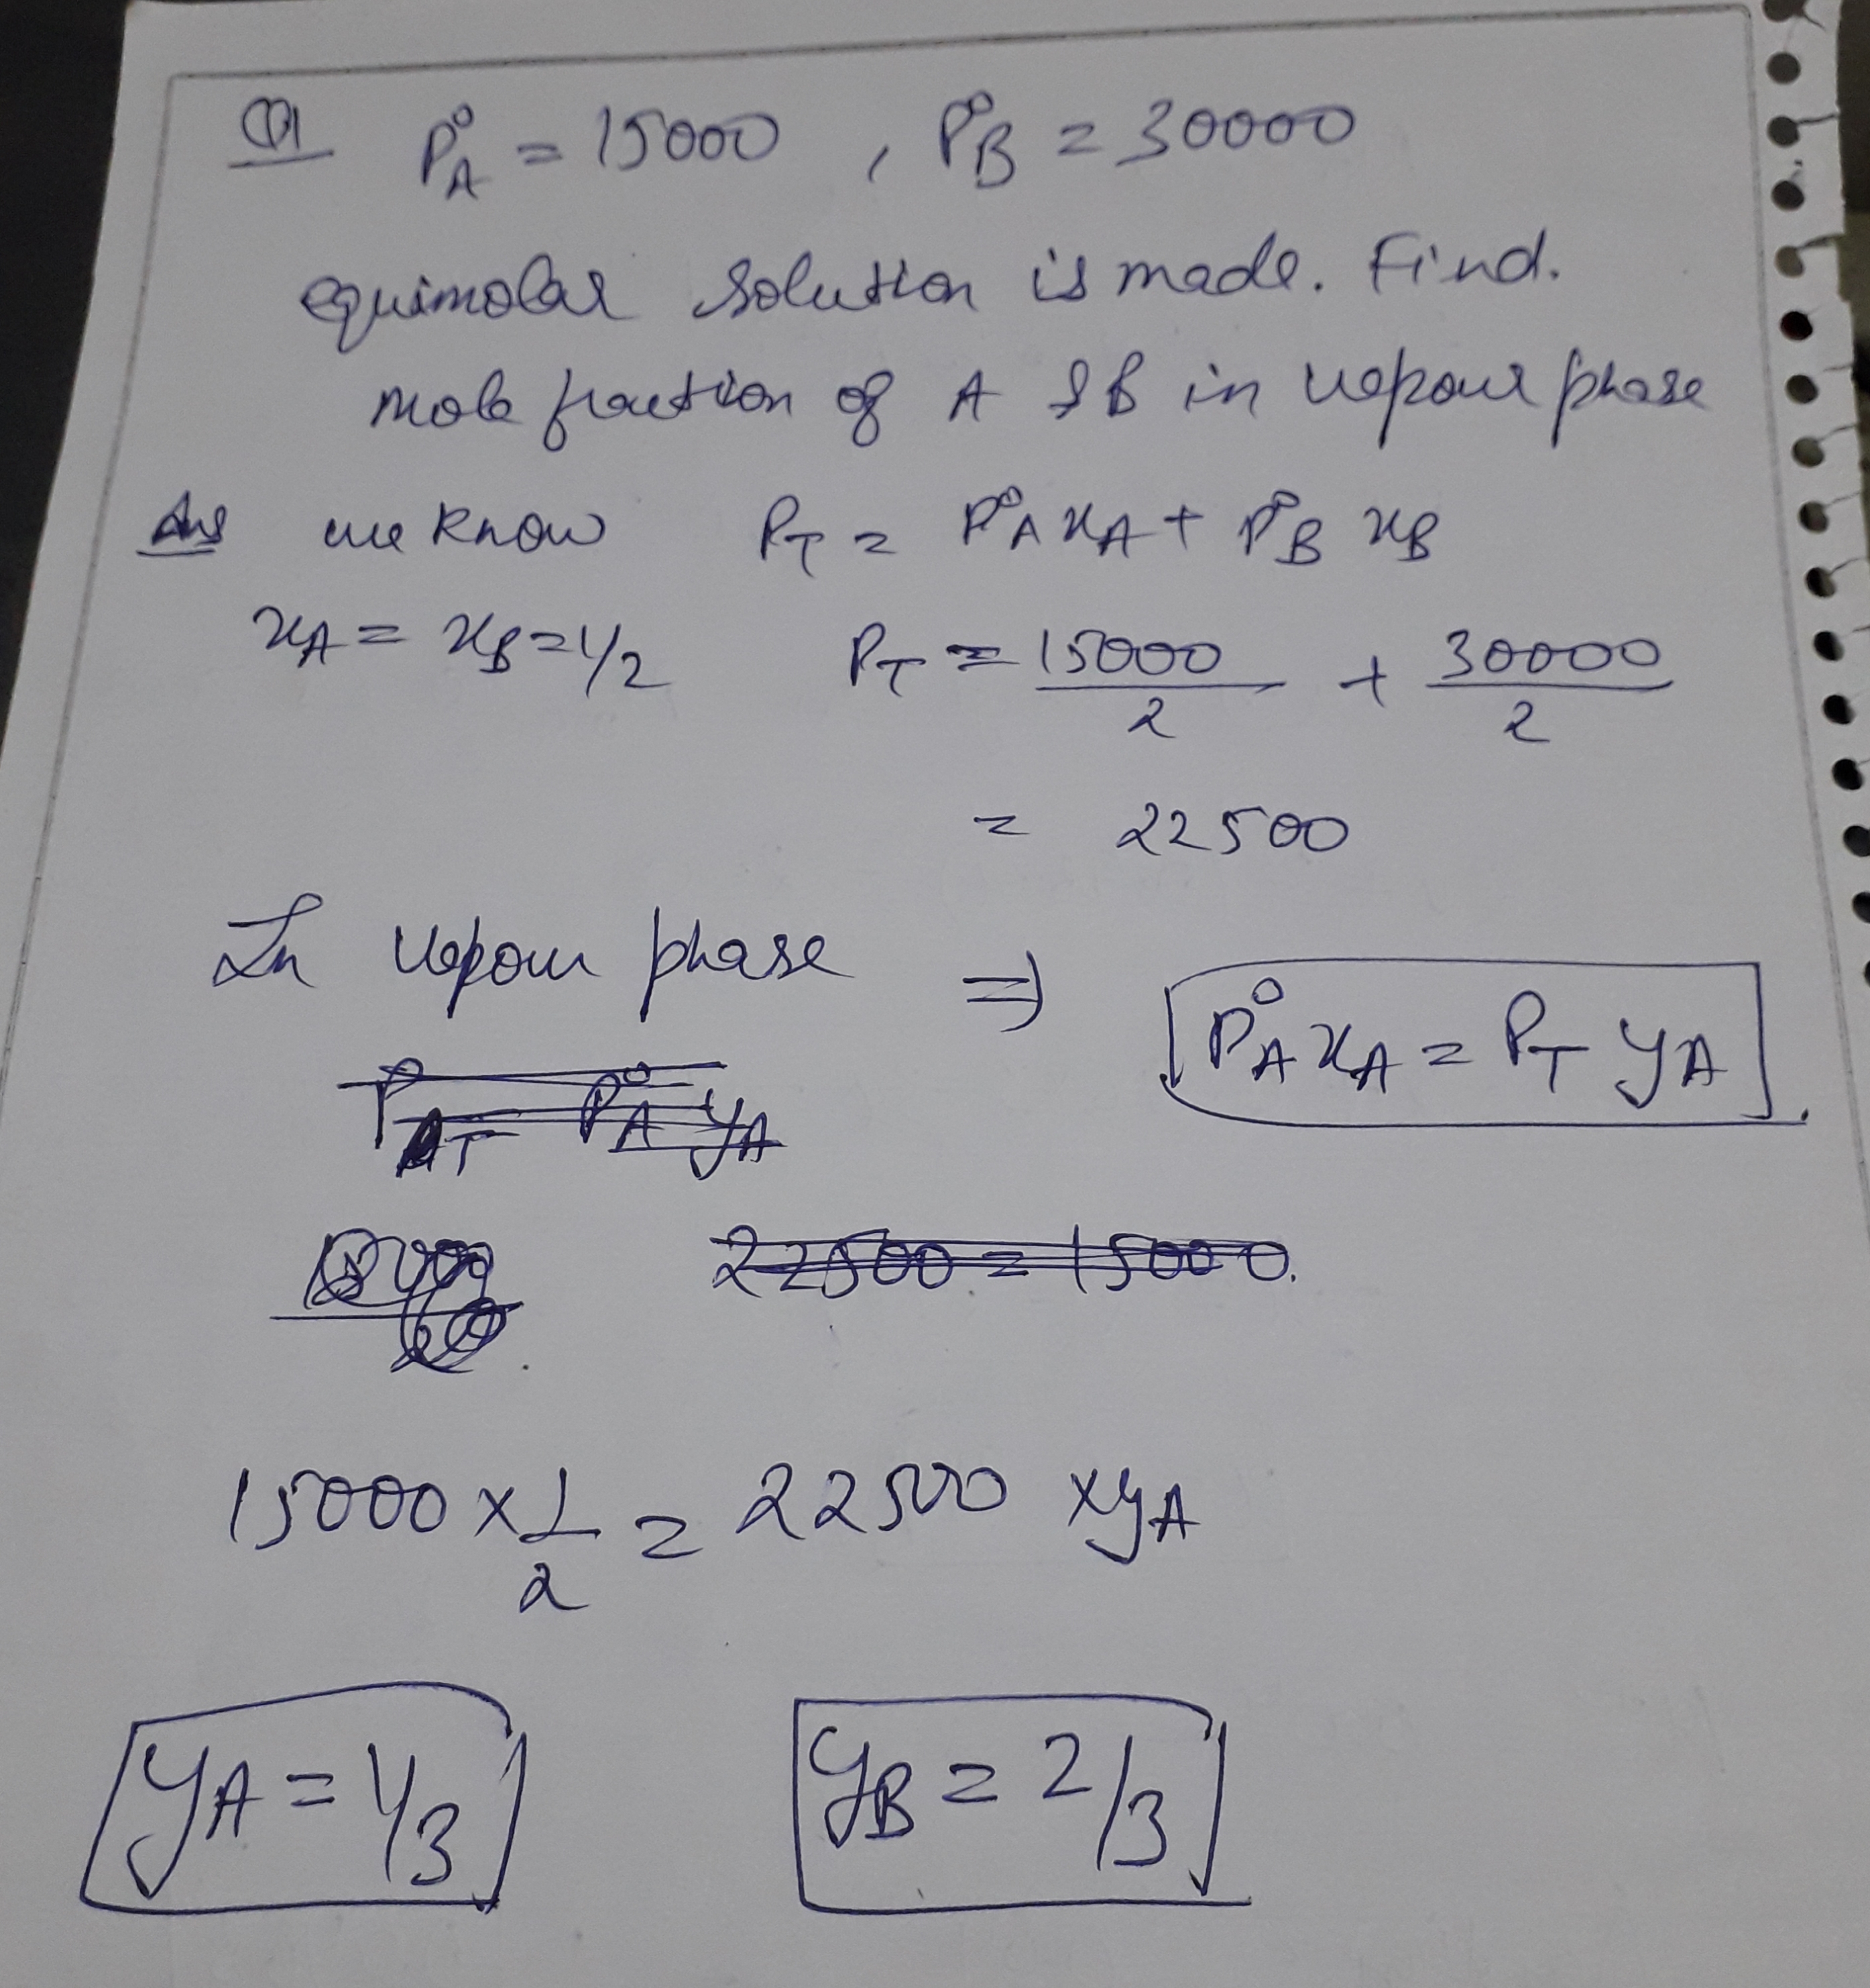 Q1 P°A = 15000 , P°B = 30000
equimolar solution is made. Find.
mole fraction of A & B in vapour phase
Ans we know PT = P°A xA + P°B xB
xA = xB = 1/2 PT = 15000/2 + 30000/2
= 22500
In vapour phase ⇒ P°A xA = PT yA
PT P°A yA
22500 = 15000.
15000 × 1/2 = 22500 × yA
yA = 1/3 yB = 2/3